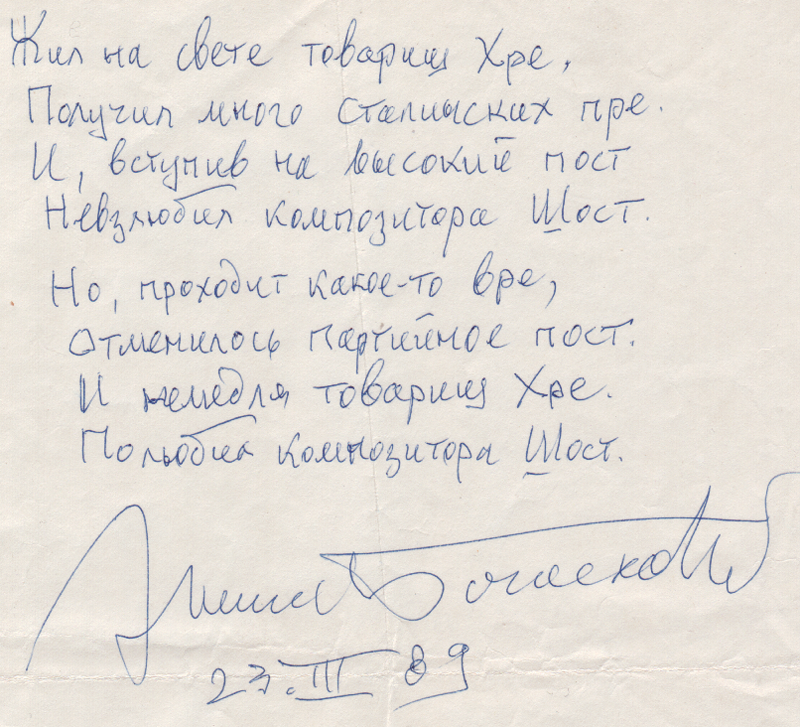 Жил на свете товарищ Хре,
Получил много сталинских пре.
И, вступив на высокий пост
Невзлюбил композитора Шост.
Но, проходит какое-то вре,
Отменилось партийное пост.
И немедля товарищ Хре.
Полюбил композитора Шост.
23.III 89